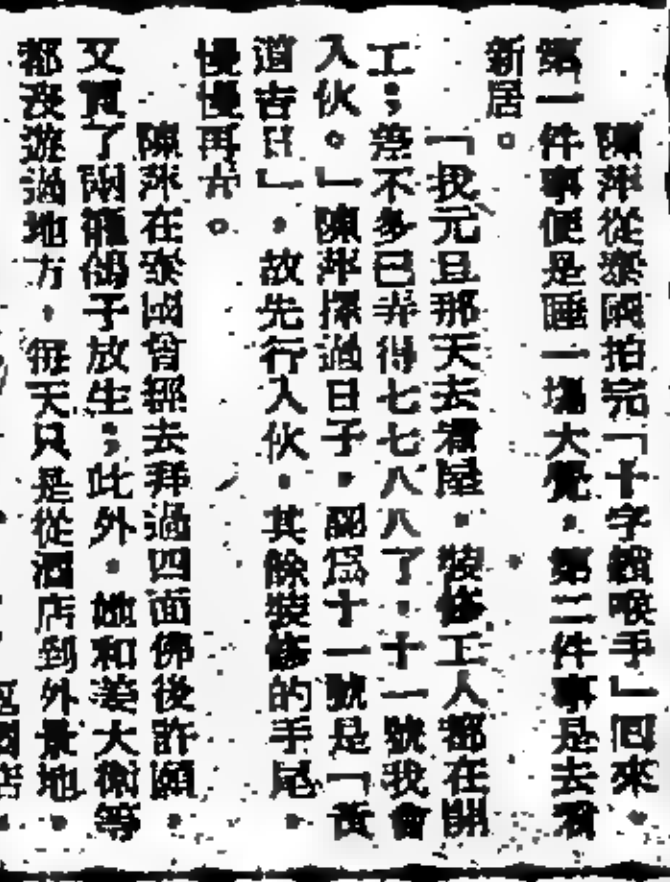 陳萍從泰國拍完「十字鎖喉手」回來，
第一件事便是睡一塲大覺，第二件事是去看
新居。
「我元旦那天去看屋，裝修工人都在開
工；差不多已弄得七七八八了，十一號我會
入伙。」陳萍擇過日子，認爲十一號是「黃
道吉日」，故先行入伙，其餘裝修的手尾，
慢慢再弄。
陳萍在泰國曾經去拜過四面佛後許願，
又買了兩籠鴿子放生；此外，她和姜大衞等
都沒遊過地方，每天只是從酒店到外景地，